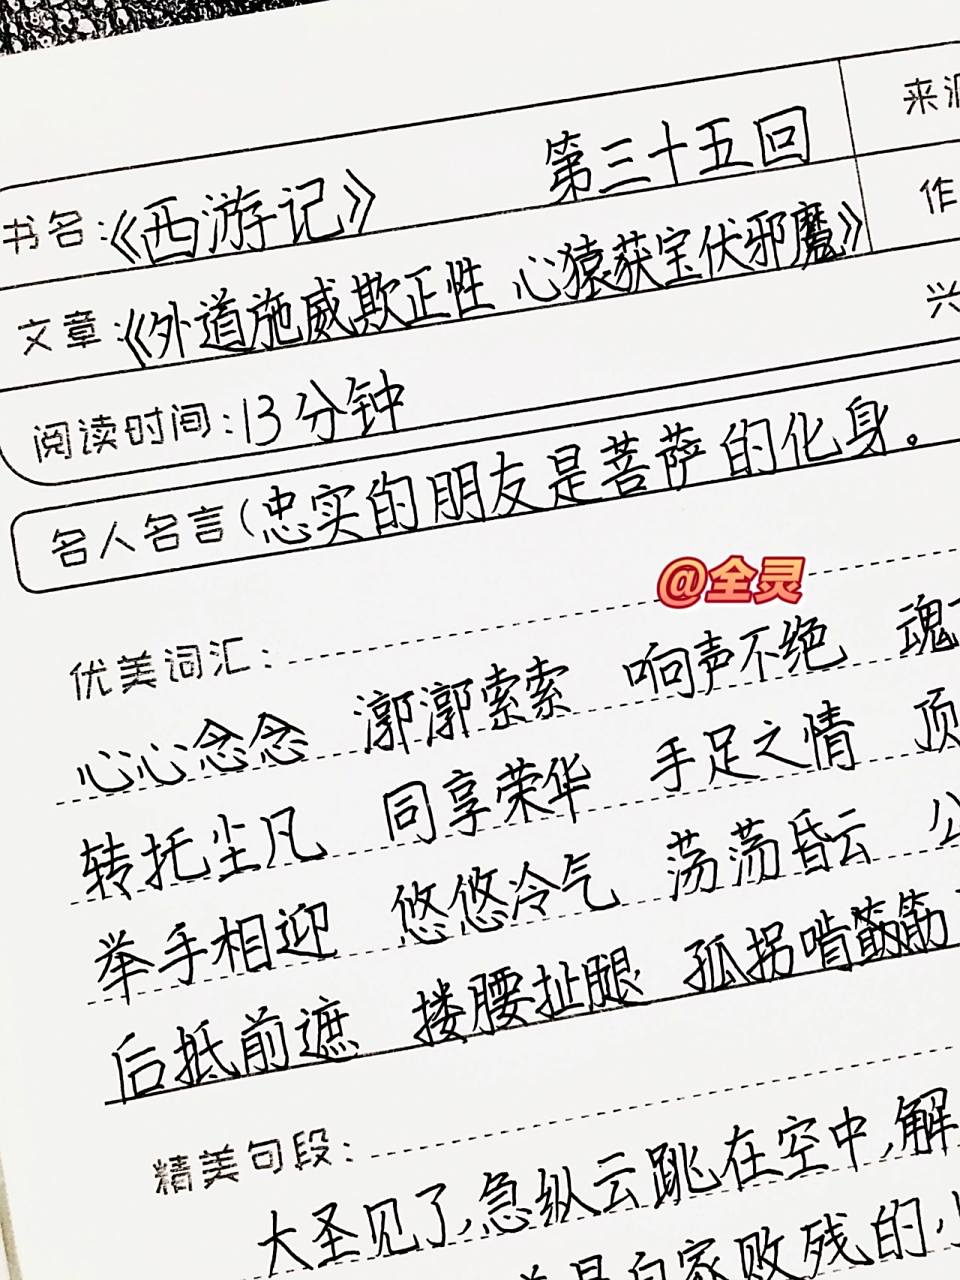 书名:《西游记》 第三十五回
文章:《外道施威欺正性 心猿获宝伏邪魔》
阅读时间:13分钟
名人名言(忠实的朋友是菩萨的化身。
@全灵
优美词汇:
心心念念 漷漷索索 响声不绝 魂
转托尘凡 同享荣华 手足之情 顶
举手相迎 悠悠冷气 荡荡昏云 公
后抵前遮 搂腰扯腿 孤拐啃筋
精美句段:
大圣见了,急纵云跳在空中,解
是自家败残的小
来源
作
兴